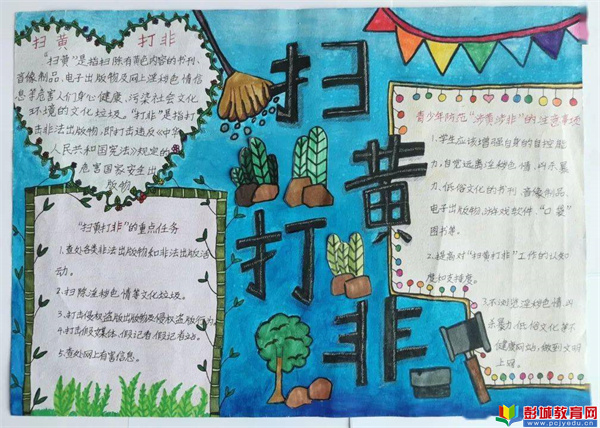 扫黄 打非
"扫黄"是指扫除有黄色内容的书刊、
音像制品、电子出版物及网上淫秽色情信
息等危害人们身心健康、污染社会文化
环境的文化垃圾。"打非"是指打
击非法出版物,即打击违反《中华
人民共和国宪法》规定的
危害国家安全出
版物
"扫黄打非"的重点任务
1.查处各类非法出版物和非法出版活
动。
2.扫除淫秽色情等文化垃圾。
3.打击侵权盗版出版物及侵权盗版行为
4.打击假媒体、假记者、假记者站。
5.查处网上有害信息。
扫
黄
打
非
青少年防范"涉黄涉非"的注意事项
1.学生应该增强自身的自控能
力,自觉远离淫秽色情、凶杀暴
力、低俗文化的书刊、音像制品、
电子出版物、游戏软件、"口袋"
图书等。
2.提高对"扫黄打非"工作的认知
度和支持度。
3.不浏览淫秽色情、凶
杀暴力、低俗文化等不
健康网站,做到文明
上网。
彭城教育网
www.pcjyedu.cn